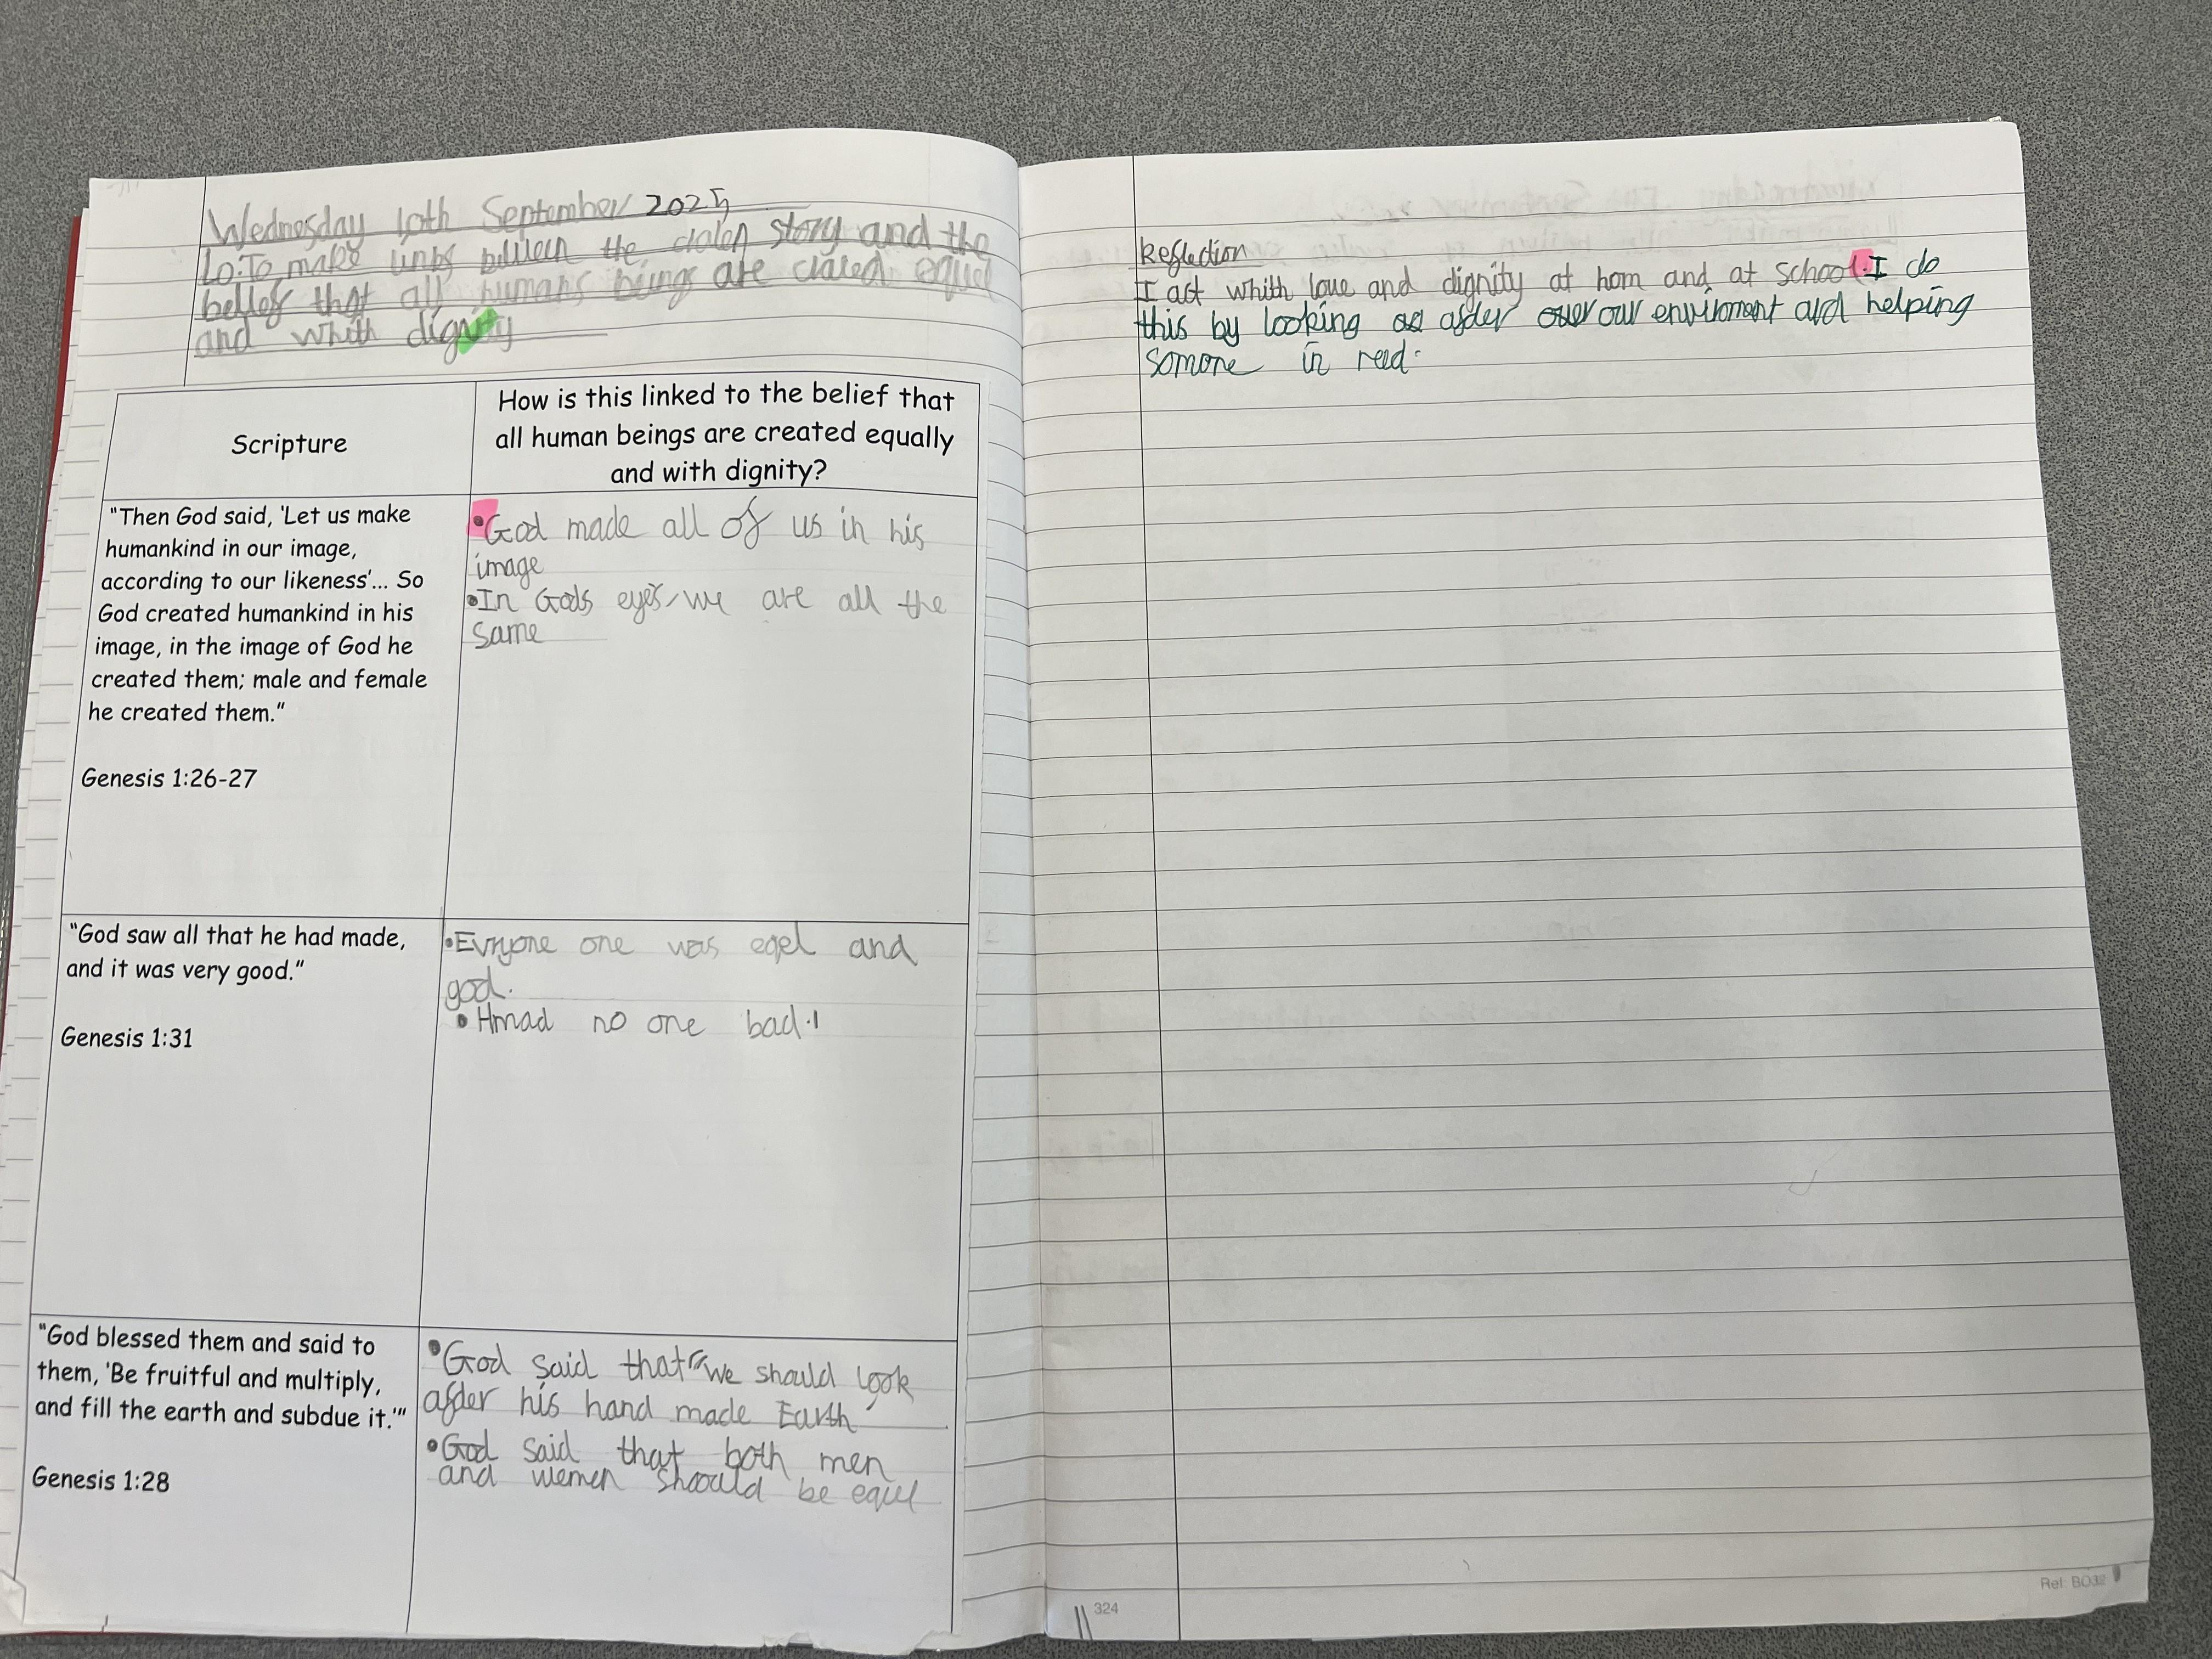 Wednesday 10th September 2025
Lo: To make links between the story and the
belief that all humans beings are equel
and whith dignity
Scripture
How is this linked to the belief that
all human beings are created equally
and with dignity?
"Then God said, 'Let us make
humankind in our image,
according to our likeness'... So
God created humankind in his
image, in the image of God he
created them; male and female
he created them."
Genesis 1:26-27
•God made all of us in his
image
•In Gods eyes, we are all the
same
"God saw all that he had made,
and it was very good."
Genesis 1:31
•Evryone one was eqel and
god.
•Hmad no one bad.
"God blessed them and said to
them, 'Be fruitful and multiply,
and fill the earth and subdue it.'"
Genesis 1:28
•God said that "we should look
after his hand made Earth"
•God said that both men
and wemen shoould be equel
Reflection
I act whith love and dignity at hom and at school. I do
this by looking after our enviroment and helping
somone in need.
324
Ref: BO32